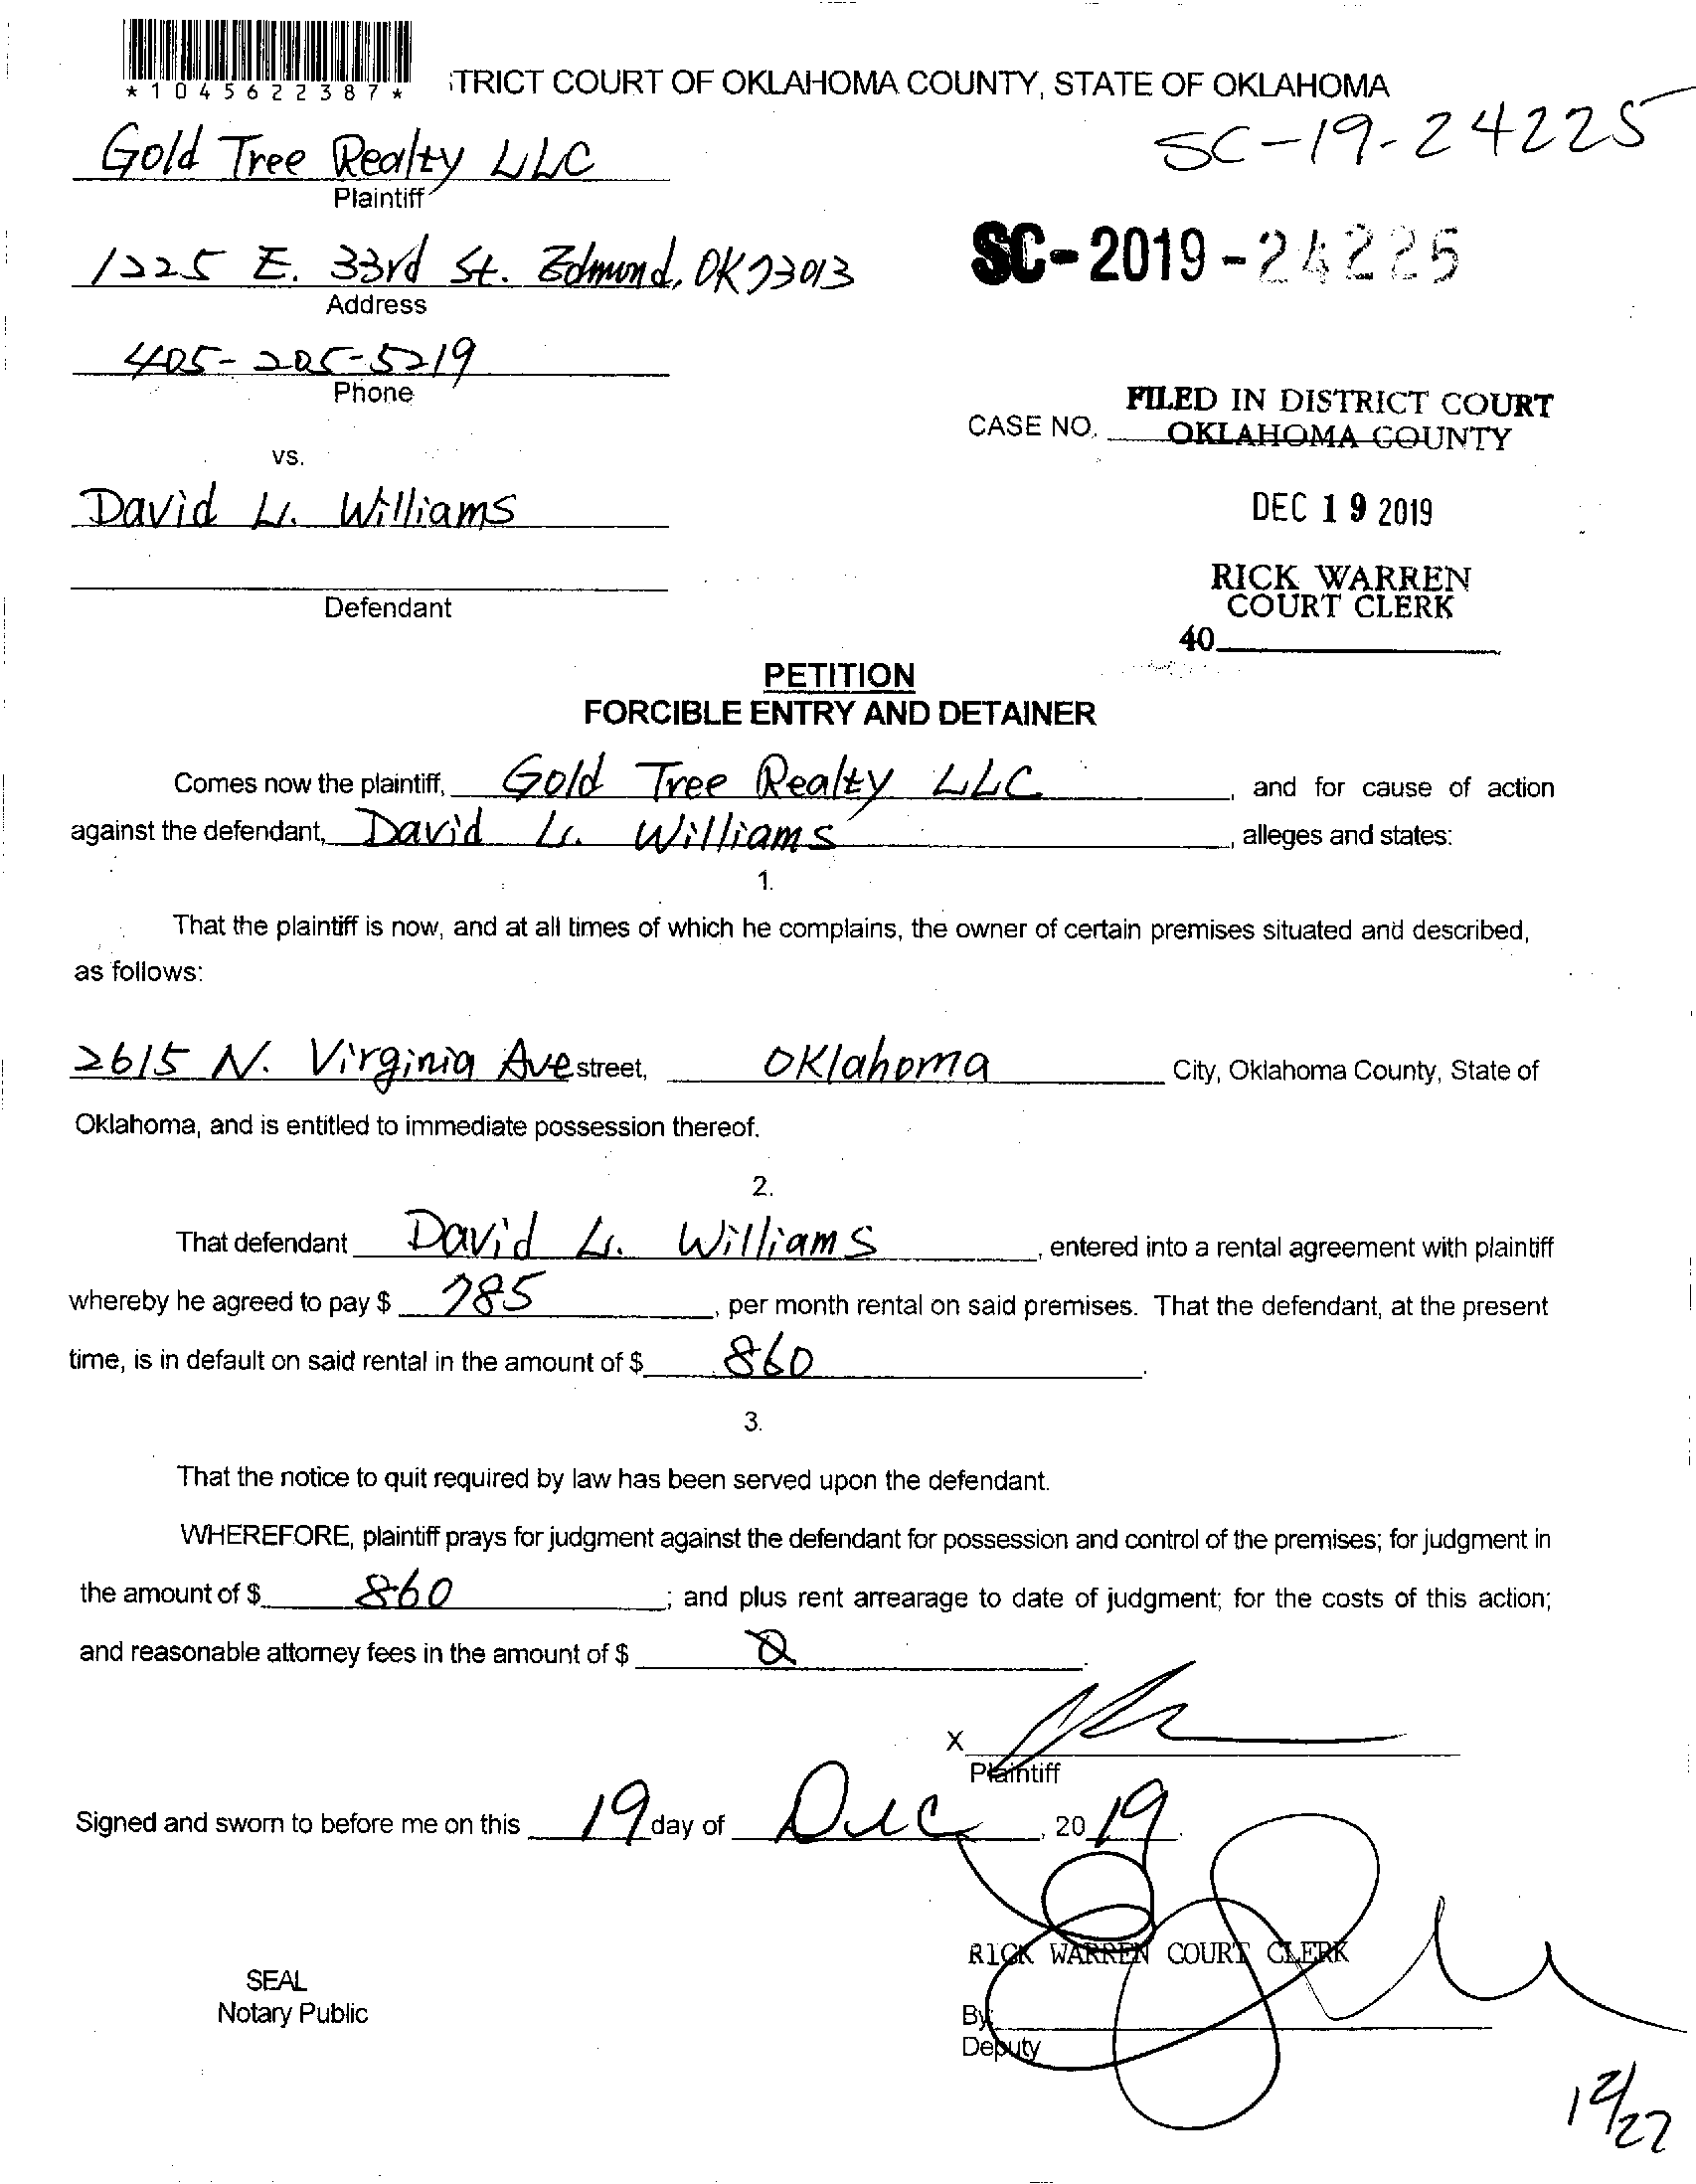 *1045622387*
TRICT COURT OF OKLAHOMA COUNTY, STATE OF OKLAHOMA
SC-19-24225
Gold Tree Realty LLC
Plaintiff
1225 E. 33rd St. Edmond, OK 73013
SC-2019-24225
Address
405-205-5219
Phone
FILED IN DISTRICT COURT
CASE NO. OKLAHOMA COUNTY
vs.
David L. Williams
DEC 19 2019
RICK WARREN
Defendant COURT CLERK
40
PETITION
FORCIBLE ENTRY AND DETAINER
Comes now the plaintiff, Gold Tree Realty LLC, and for cause of action
against the defendant, David L. Williams, alleges and states:
1.
That the plaintiff is now, and at all times of which he complains, the owner of certain premises situated and described,
as follows:
2615 N. Virginia Ave street, Oklahoma City, Oklahoma County, State of
Oklahoma, and is entitled to immediate possession thereof.
2.
That defendant David L. Williams, entered into a rental agreement with plaintiff
whereby he agreed to pay $ 785, per month rental on said premises. That the defendant, at the present
time, is in default on said rental in the amount of $ 860.
3.
That the notice to quit required by law has been served upon the defendant.
WHEREFORE, plaintiff prays for judgment against the defendant for possession and control of the premises; for judgment in
the amount of $ 860; and plus rent arrearage to date of judgment; for the costs of this action;
and reasonable attorney fees in the amount of $ 0.
X
Plaintiff
Signed and sworn to before me on this 19 day of Dec, 2019.
RICK WARREN COURT CLERK
SEAL
Notary Public
By:
Deputy
12/27